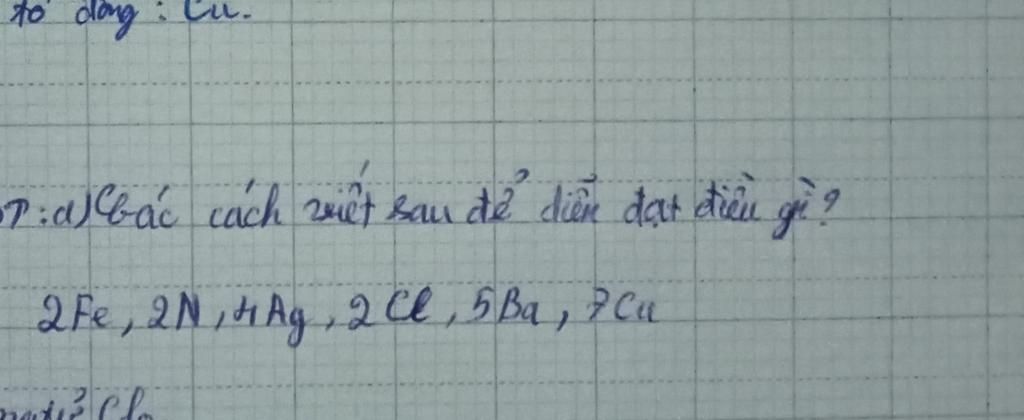 tố đồng: Cu.
T: a) Các cách viết sau để diễn đạt điều gì?
2Fe, 2N, 4Ag, 2Cl, 5Ba, 7Cu